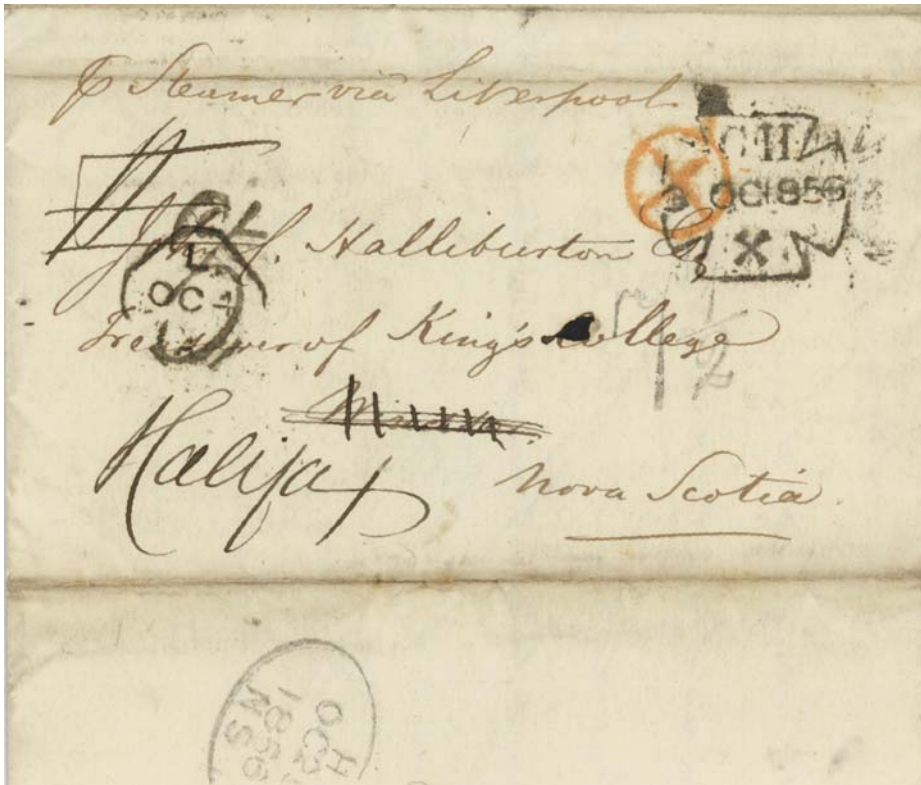 p Steamer via Liverpool
CH
3 OC 1856
X
X
John C. Halliburton Esq
L
OC
Treasurer of King's College
7½
Halifax Nova Scotia.
H
OC
1856
N S